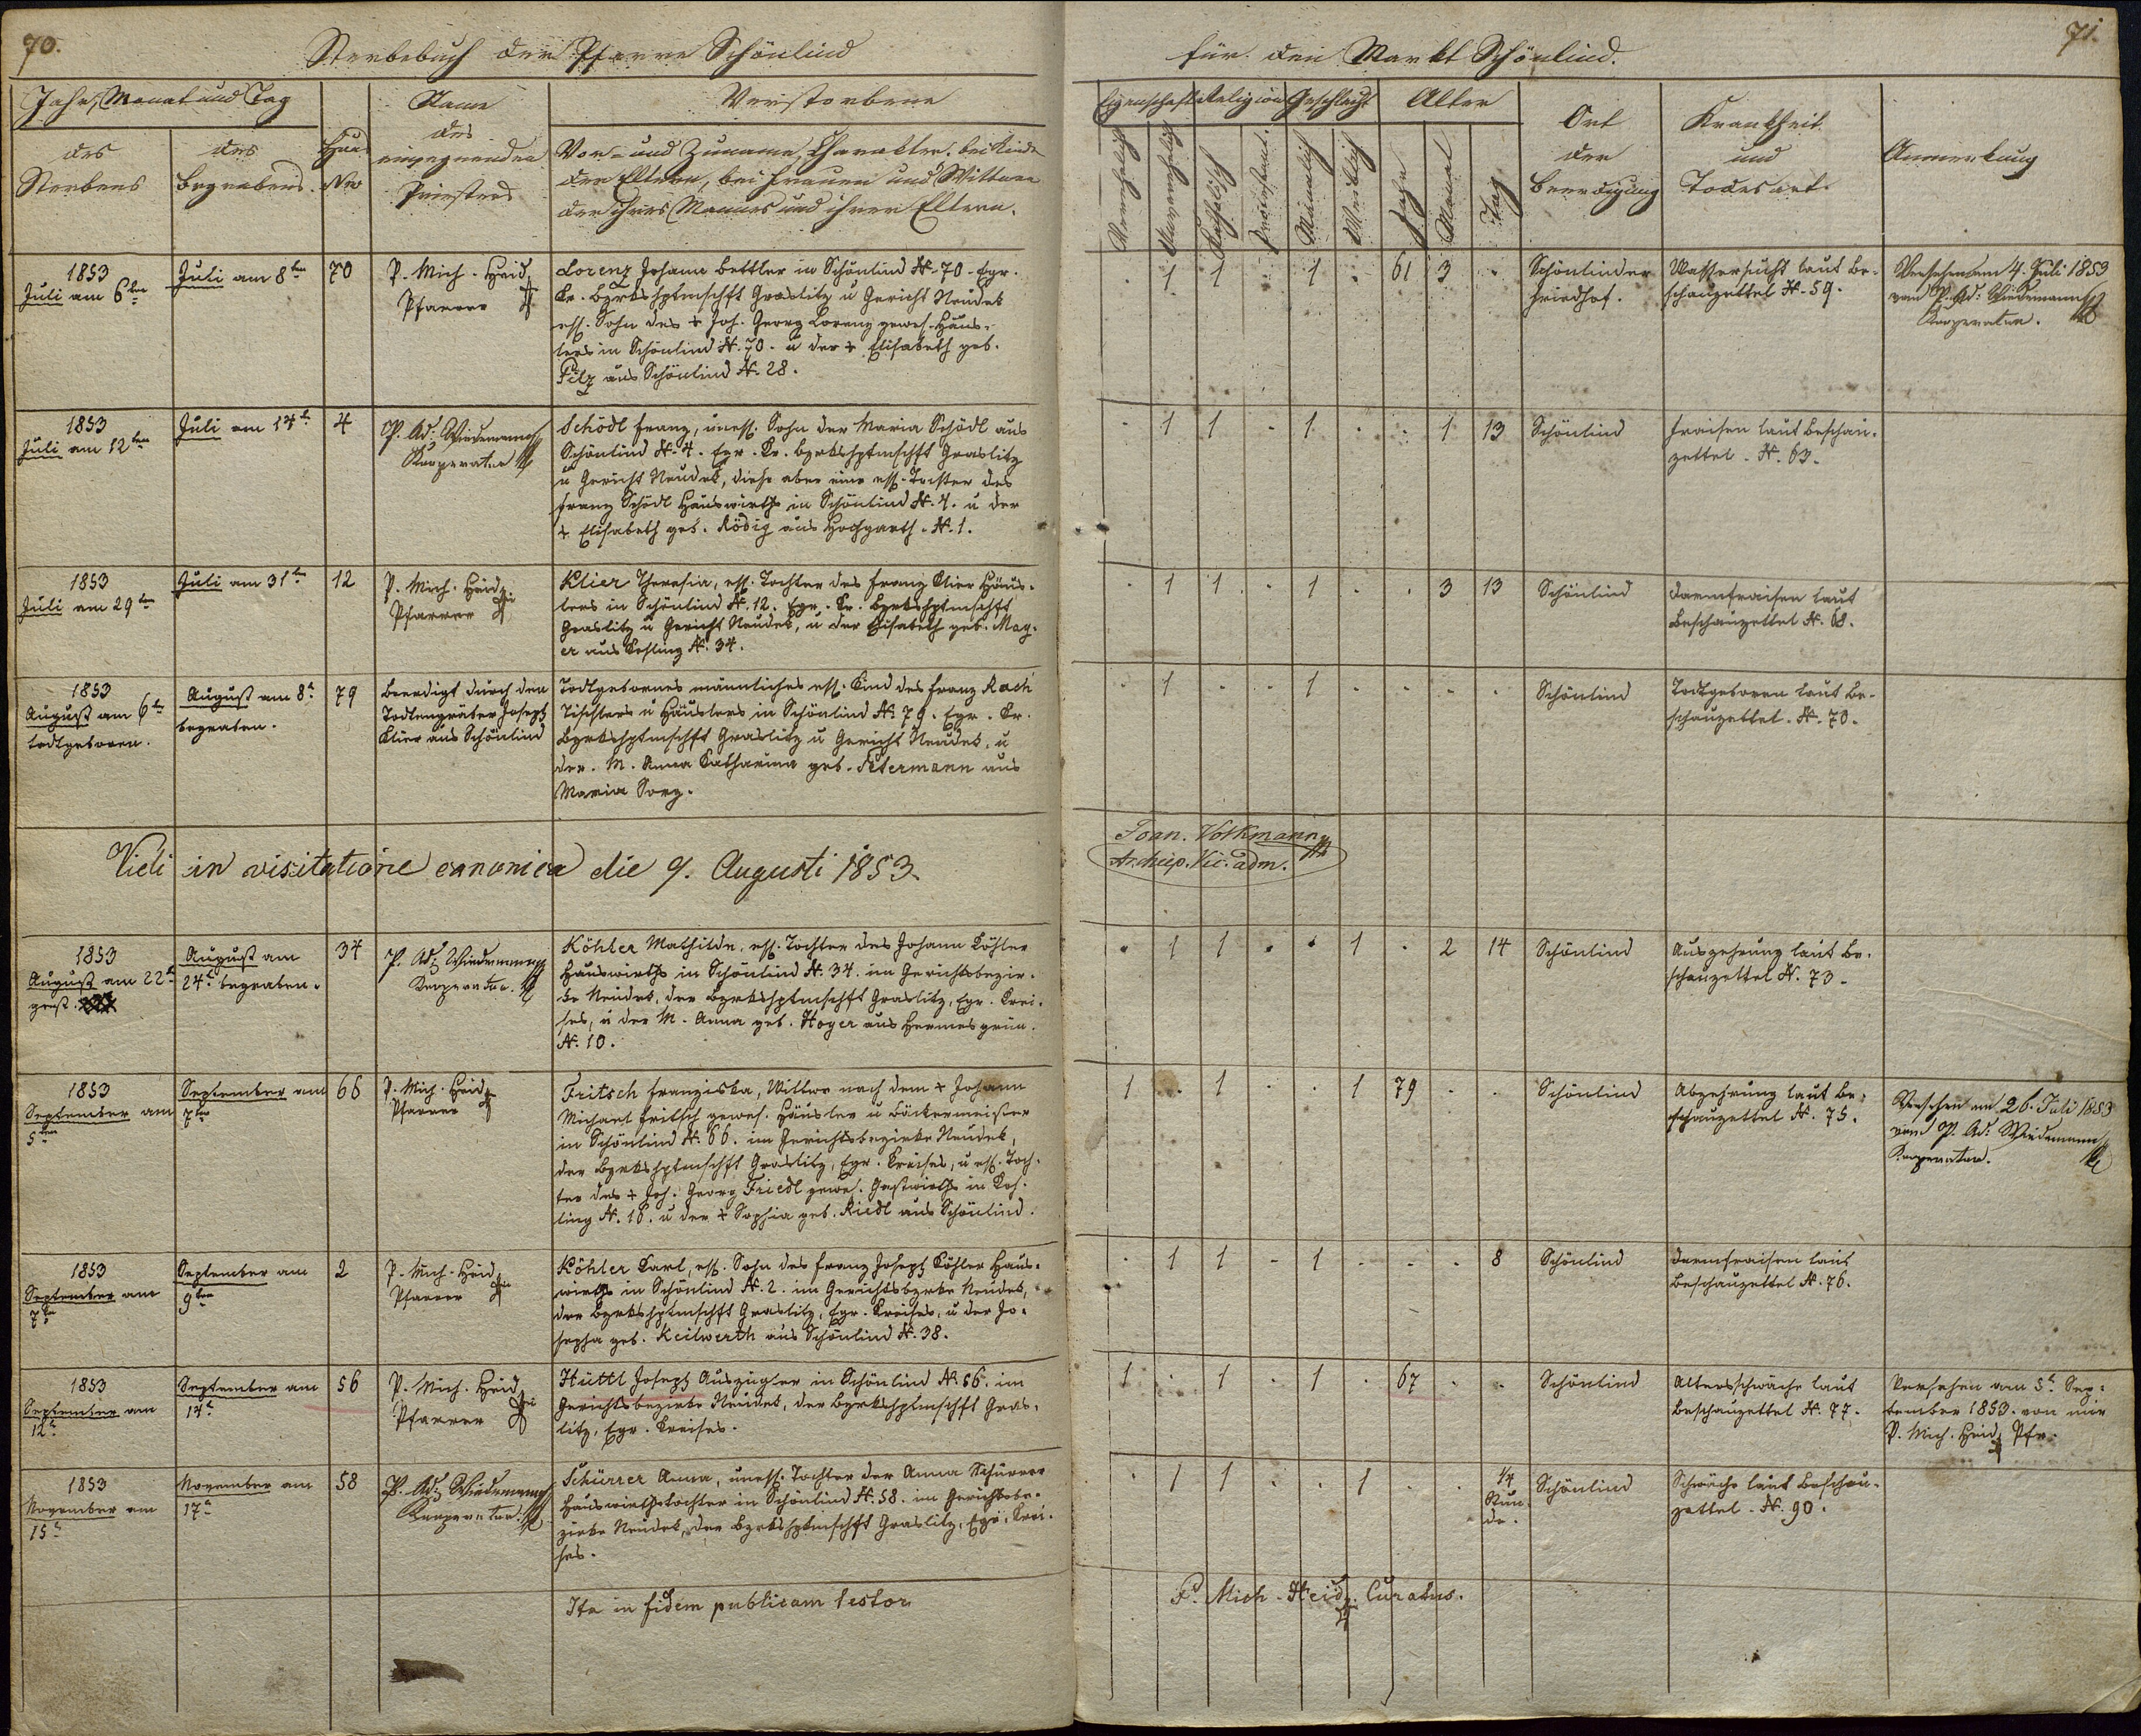 70.
Sterbebuch der Pfarre Schönlind
Jahr, Monat und Tag
des
Sterbens
des
Begrabens.
Haus
Nro
Name
des
einsegnenden
Priesters
Verstorbene
Vor- und Zuname, Charakter, bei Kinder
der Eltern, bei Frauen und Wittwen
der ihres Mannes und ihrer Eltern.
1853
Juli am 6ten
Juli am 8ten
70
P. Mich. Heid
Pfarrer
Lorenz Johann Bettler in Schönlind N. 70. Egr.
Kr. Bzrkshptmschft Graslitz u Gericht Neudek
ehl. Sohn des + Joh. Georg Lorenz gewes. Häus-
lers in Schönlind N. 70. u der + Elisabeth geb.
Pilz aus Schönlind N. 28.
1853
Juli am 12ten
Juli am 14t
4
P. Ad: Wiedemann
Kooperator
Schödl Franz, unehl. Sohn der Maria Schödl aus
Schönlind N. 4. Egr. Kr. Bzrkshptmschft Graslitz
u Gericht Neudek, diese aber eine ehl. Tochter des
Franz Schödl Hauswirths in Schönlind N. 4. u der
+ Elisabeth geb. Rödig aus Hochgarth N. 1.
1853
Juli am 29ten
Juli am 31ten
12
P. Mich. Heid
Pfarrer
Klier Theresia, ehl. Tochter des Franz Klier Häus-
lers in Schönlind N. 12. Egr. Kr. Bzrkshptmschft
Graslitz u Gericht Neudek, u der Elisabeth geb. May-
er aus Kohling N. 34.
1853
August am 6ten
todtgeboren.
August am 8t
begraben.
79
Beerdigt durch den
Todtengräber Joseph
Klier aus Schönlind
Todtgebornes männliches ehl. Kind des Franz Rach
Tischlers u Häuslers in Schönlind N. 79. Egr. Kr.
Bzrkshptmschft Graslitz u Gericht Neudek, u
der M. Anna Catharina geb. Petermann aus
Maria Sorg.
Vidi in visitatione canonica die 9. Augusti 1853.
1853
August am 22t
gest.
August am
24t begraben.
34
P. Ad: Wiedemann
Kooperator.
Köhler Mathilde, ehl. Tochter des Johann Köhler
Hauswirths in Schönlind N. 34. im Gerichtsbezir-
ke Neudek, der Bzrkshptmschft Graslitz, Egr. Krei-
ses, u der M. Anna geb. Hoyer aus Hermesgrün
N. 10.
1853
September am
5ten
September am
7ten
66
P. Mich. Heid
Pfarrer
Fritsch Franziska, Wittwe nach dem + Johann
Michael Fritsch gewes. Häusler u Bäckermeister
in Schönlind N. 66. im Gerichtsbezirke Neudek,
der Bzrkshptmschft Graslitz, Egr. Kreises, u ehl. Toch-
ter des + Joh. Georg Friedl gewes. Gastwirths in Koh-
ling N. 16. u der + Sophia geb. Riedl aus Schönlind.
1853
September am
7ten
September am
9ten
2
P. Mich. Heid
Pfarrer
Köhler Carl, ehl. Sohn des Franz Joseph Köhler Haus-
wirths in Schönlind N. 2. im Gerichtsbzrke Neudek,
der Bzrkshptmschft Graslitz, Egr. Kreises, u der Jo-
sepha geb. Keilwerth aus Schönlind N. 38.
1853
September am
12t
September am
14t
56
P. Mich. Heid
Pfarrer
Hüttl Joseph Auszügler in Schönlind N. 56. im
Gerichtsbezirke Neudek, der Bzrkshptmschft Gras-
litz, Egr. Kreises.
1853
November am
15t
November am
17t
58
P. Ad: Wiedemann
Kooperator.
Schürrer Anna, unehl. Tochter der Anna Schürrer
Hauswirthstochter in Schönlind N. 58. im Gerichtsbe-
zirke Neudek, der Bzrkshptmschft Graslitz, Egr. Krei-
ses.
Ita in fidem publicam testor
71.
für den Markt Schönlind.
Eigenschaft
Religion
Geschlecht
Alter
Verehelicht
Unverehelicht
Katholisch
Protestant.
Männlich
Weiblich
Jahr
Monat
Tag
Ort
der
Beerdigung
Krankheit
und
Todesart.
Anmerkung
. 1 1 . 1 . 61 3 .
Schönlinder
Friedhof.
Wassersucht laut Be-
schauzettel N. 59.
Versehen am 4. Juli 1853
von P. Ad: Wiedemann
Kooperator.
. 1 1 . 1 . . 1 13
Schönlind
Fraisen laut Beschau-
zettel N. 63.
. 1 1 . 1 . . 3 13
Schönlind
Darmfraisen laut
Beschauzettel N. 68.
. 1 . . 1 . . . .
Schönlind
Todtgeboren laut Be-
schauzettel N. 70.
Joan. Volkmann
Archiep. Vic. adm.
. 1 1 . . 1 . 2 14
Schönlind
Auszehrung laut Be-
schauzettel N. 73.
1 . 1 . . 1 79 . .
Schönlind
Abzehrung laut Be-
schauzettel N. 75.
Versehen am 26. Juli 1853
von P. Ad: Wiedemann
Kooperator.
. 1 1 . 1 . . . 8
Schönlind
Darmfraisen laut
Beschauzettel N. 76.
1 . 1 . 1 . 67 . .
Schönlind
Altersschwäche laut
Beschauzettel N. 77.
Versehen am 5t Sep-
tember 1853. von mir
P. Mich. Heid Pfr.
. 1 1 . . 1 . . 1/4
Stun-
de.
Schönlind
Schwäche laut Beschau-
zettel N. 90.
P. Mich. Heid. Curatus.